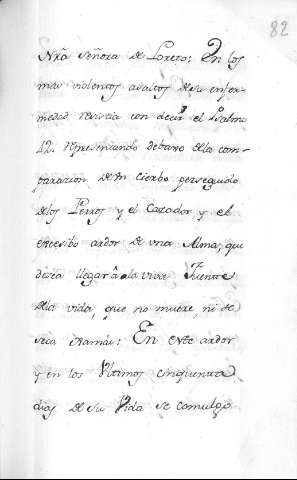 82
Nrã Señora de Loreto: En los
mas violentos asaltos de su enfer-
medad resistia con decir el Psalmo
42. representando debaxo dela com-
paracion de un Cierbo perseguido
delos Perros y el Cazador y el
excesibo ardor de una Alma, que
desea llegar â la viva Fuente
dela vida, que no muere, ni se
En este ardor
y en los Vltimos cinquenta
dias de su Vida se comulgo